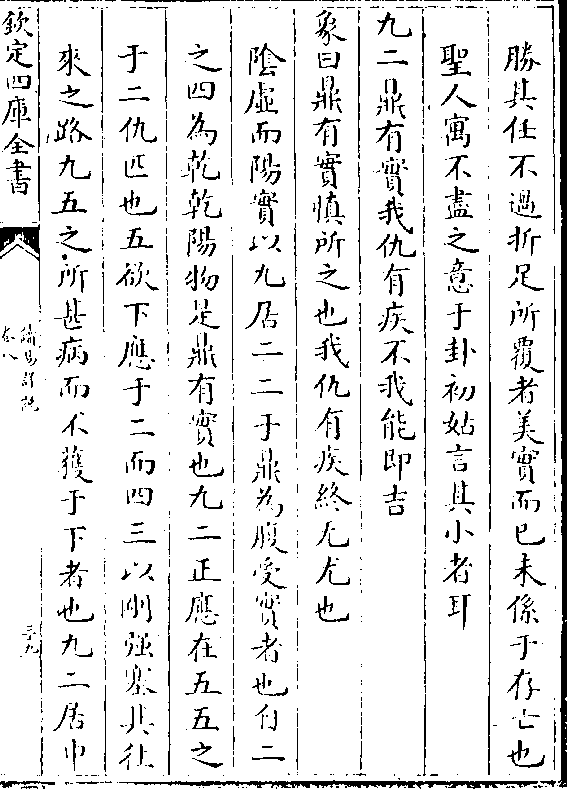 勝其任不過折足所覆者美實而已未係于存亡也
聖人寓不盡之意于卦初姑言其小者耳
九二鼎有實我仇有疾不我能即吉
象曰鼎有實慎所之也我仇有疾終无尤也
陰虛而陽實以九居二二于鼎為腹受實者也自二
之四為乾乾陽物是鼎有實也九二正應在五五之
于二仇匹也五欲下應于二而四三以剛强塞其往
來之路九五之所甚病而不獲于下者也九二居中
欽定四庫全書
讀易詳說
卷八
三九